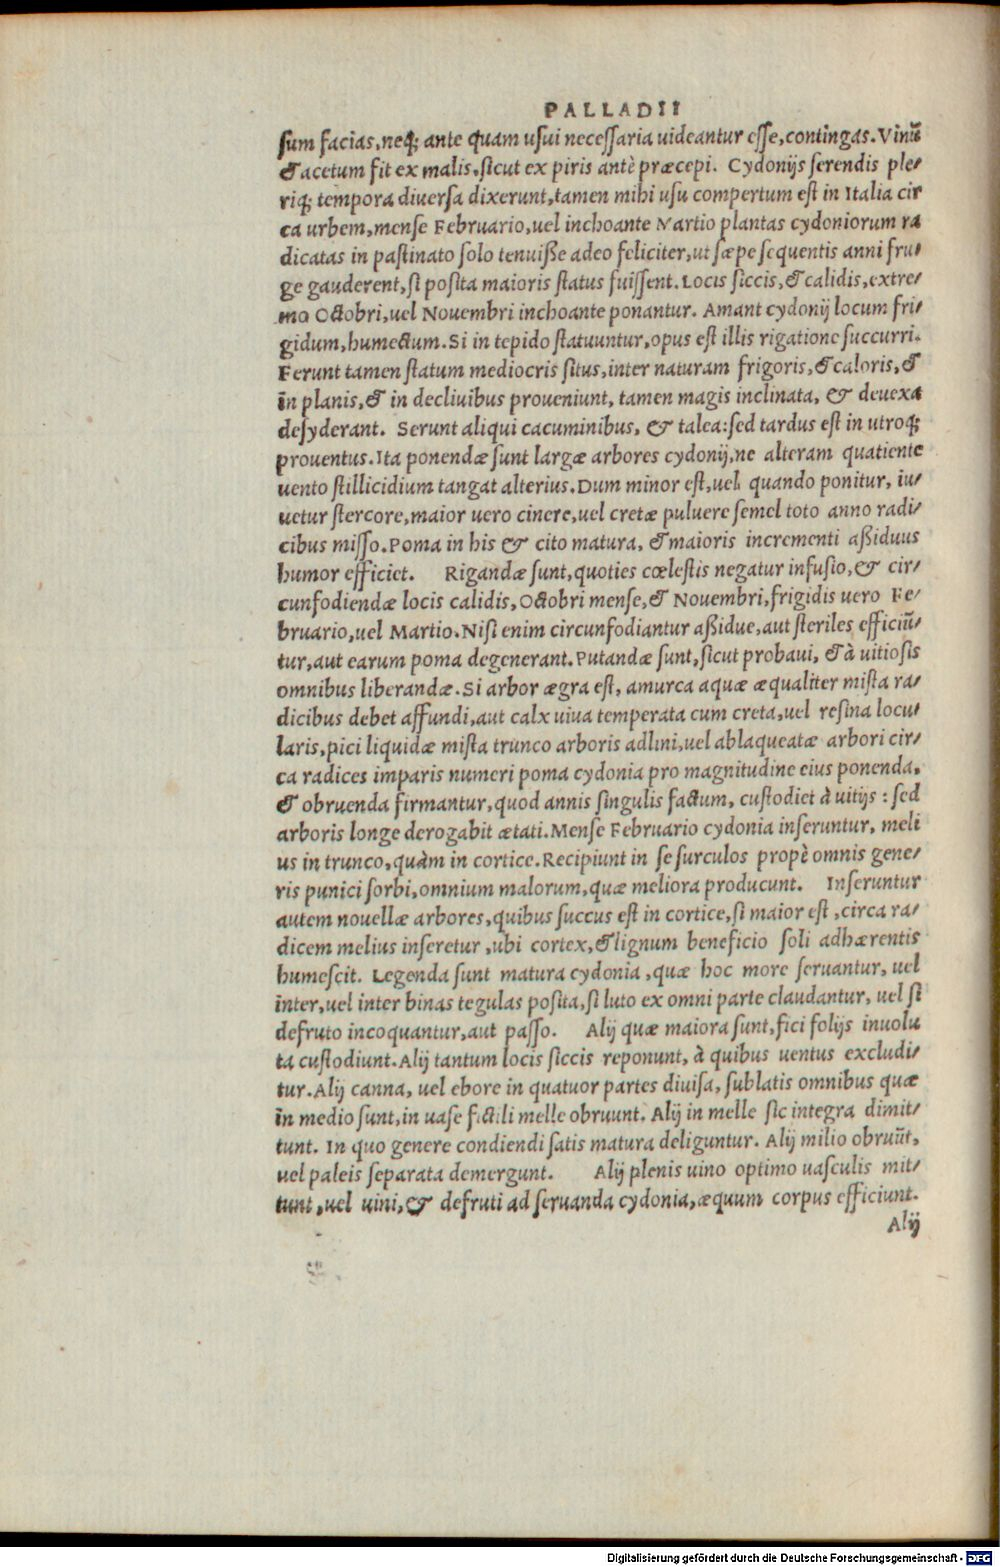 PALLADII
sum facias, neq; ante quam usui necessaria uideantur esse, contingas. Vinũ
& acetum fit ex malis, sicut ex piris antè præcepi. Cydonijs serendis ple-
riq; tempora diuersa dixerunt, tamen mihi usu compertum est in Italia cir
ca urbem, mense Februario, uel inchoante Martio plantas cydoniorum ra
dicatas in pastinato solo tenuisse adeo feliciter, ut sæpe sequentis anni fru-
ge gauderent, si posita maioris status fuissent. Locis siccis, & calidis, extre-
mo Octobri, uel Nouembri inchoante ponantur. Amant cydonij locum fri-
gidum, humectum. Si in tepido statuuntur, opus est illis rigatione succurri.
Ferunt tamen statum mediocris situs, inter naturam frigoris, & caloris, &
in planis, & in decliuibus proueniunt, tamen magis inclinata, & deuexa
desyderant. Serunt aliqui cacuminibus, & talea: sed tardus est in utroq;
prouentus. Ita ponendæ sunt largæ arbores cydonij, ne alteram quatiente
uento stillicidium tangat alterius. Dum minor est, uel quando ponitur, iu-
uetur stercore, maior uero cinere, uel cretæ puluere semel toto anno radi-
cibus misso. Poma in his & cito matura, & maioris incrementi assiduus
humor efficiet. Rigandæ sunt, quoties cœlestis negatur infusio, & cir-
cunfodiendæ locis calidis, Octobri mense, & Nouembri, frigidis uero Fe-
bruario, uel Martio. Nisi enim circunfodiantur assidue, aut steriles efficiũ-
tur, aut earum poma degenerant. Putandæ sunt, sicut probaui, & à uitiosis
omnibus liberandæ. Si arbor ægra est, amurca aquæ æqualiter mista ra-
dicibus debet affundi, aut calx uiua temperata cum creta, uel resina locu-
laris, pici liquidæ mista trunco arboris adlini, uel ablaqueatæ arbori cir-
ca radices imparis numeri poma cydonia pro magnitudine eius ponenda,
& obruenda firmantur, quod annis singulis factum, custodiet à uitijs: sed
arboris longe derogabit ætati. Mense Februario cydonia inseruntur, meli
us in trunco, quàm in cortice. Recipiunt in se surculos propè omnis gene-
ris punici sorbi, omnium malorum, quæ meliora producunt. Inseruntur
autem nouellæ arbores, quibus succus est in cortice, si maior est, circa ra-
dicem melius inseretur, ubi cortex, & lignum beneficio soli adhærentis
humescit. Legenda sunt matura cydonia, quæ hoc more seruantur, uel
inter, uel inter binas tegulas posita, si luto ex omni parte claudantur, uel si
defruto incoquantur, aut passo. Alij quæ maiora sunt, fici folijs inuolu
ta custodiunt. Alij tantum locis siccis reponunt, à quibus uentus excludi-
tur. Alij canna, uel ebore in quatuor partes diuisa, sublatis omnibus quæ
in medio sunt, in uase fictili melle obruunt. Alij in melle sic integra dimit-
tunt. In quo genere condiendi satis matura deliguntur. Alij milio obruũt,
uel paleis separata demergunt. Alij plenis uino optimo uasculis mit-
tunt, uel uini, & defruti ad seruanda cydonia, æquum corpus efficiunt.
Alij
Digitalisierung gefördert durch die Deutsche Forschungsgemeinschaft - DFG